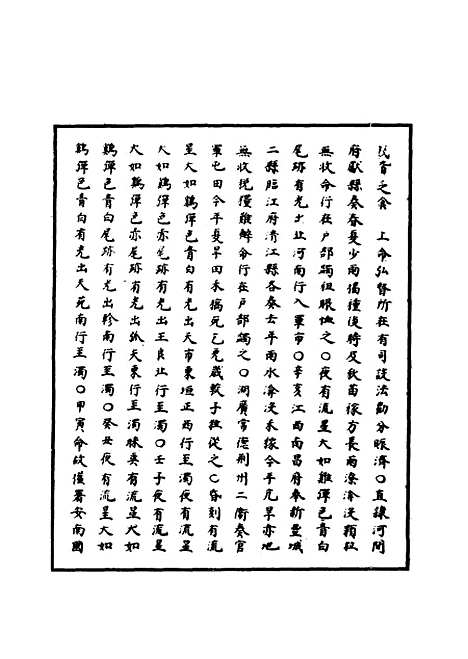 民皆乏食　上命弘督所在有司設法勸分賑濟○直隸河間
府獻縣奏春夏少雨揭種後時及秋苗稼方長雨潦渰沒顆粒
無收命行在戶部蠲租賑恤之○夜有流星大如雞彈色青白
尾跡有光出河南行入軍市○辛亥江西南昌府奉新豐城
二縣臨江府清江縣各奏去年雨水渰沒禾稼今年亢旱赤地
無收稅糧難辦命行在戶部蠲之○湖廣常德荊州二衛奏官
軍屯田今年夏旱田禾槁死乞免歲較子粒從之○昏刻有流
星大如雞彈色青白有光出天市東垣正西行至濁夜有流星
大如雞彈色赤尾跡有光出王良北行至濁○壬子夜有流星
大如雞彈色赤尾跡有光出弧矢東行至濁昧爽有流星大如
鷄彈色青白尾跡有光出軫南行至濁○癸丑夜有流星大如
鷄彈色青白有光出天苑南行至濁○甲寅命故權署安南國